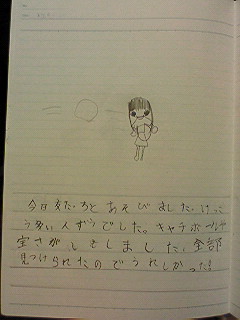 今日友だちとあそびました。けっこ
う多い人ずうでした。キャチボールや
宝さがしをしました。全部
見つけられたのでうれしかった!